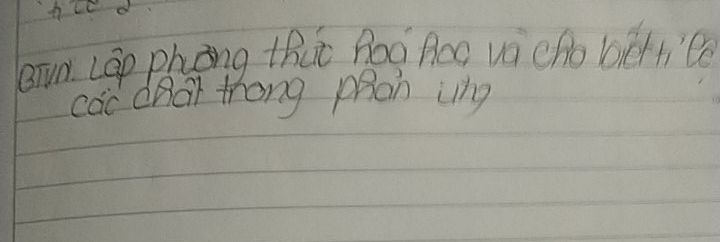 BTVN. Lập phương thức hoá hoc và cho biết tỉ lệ
các chất trong phản ứng